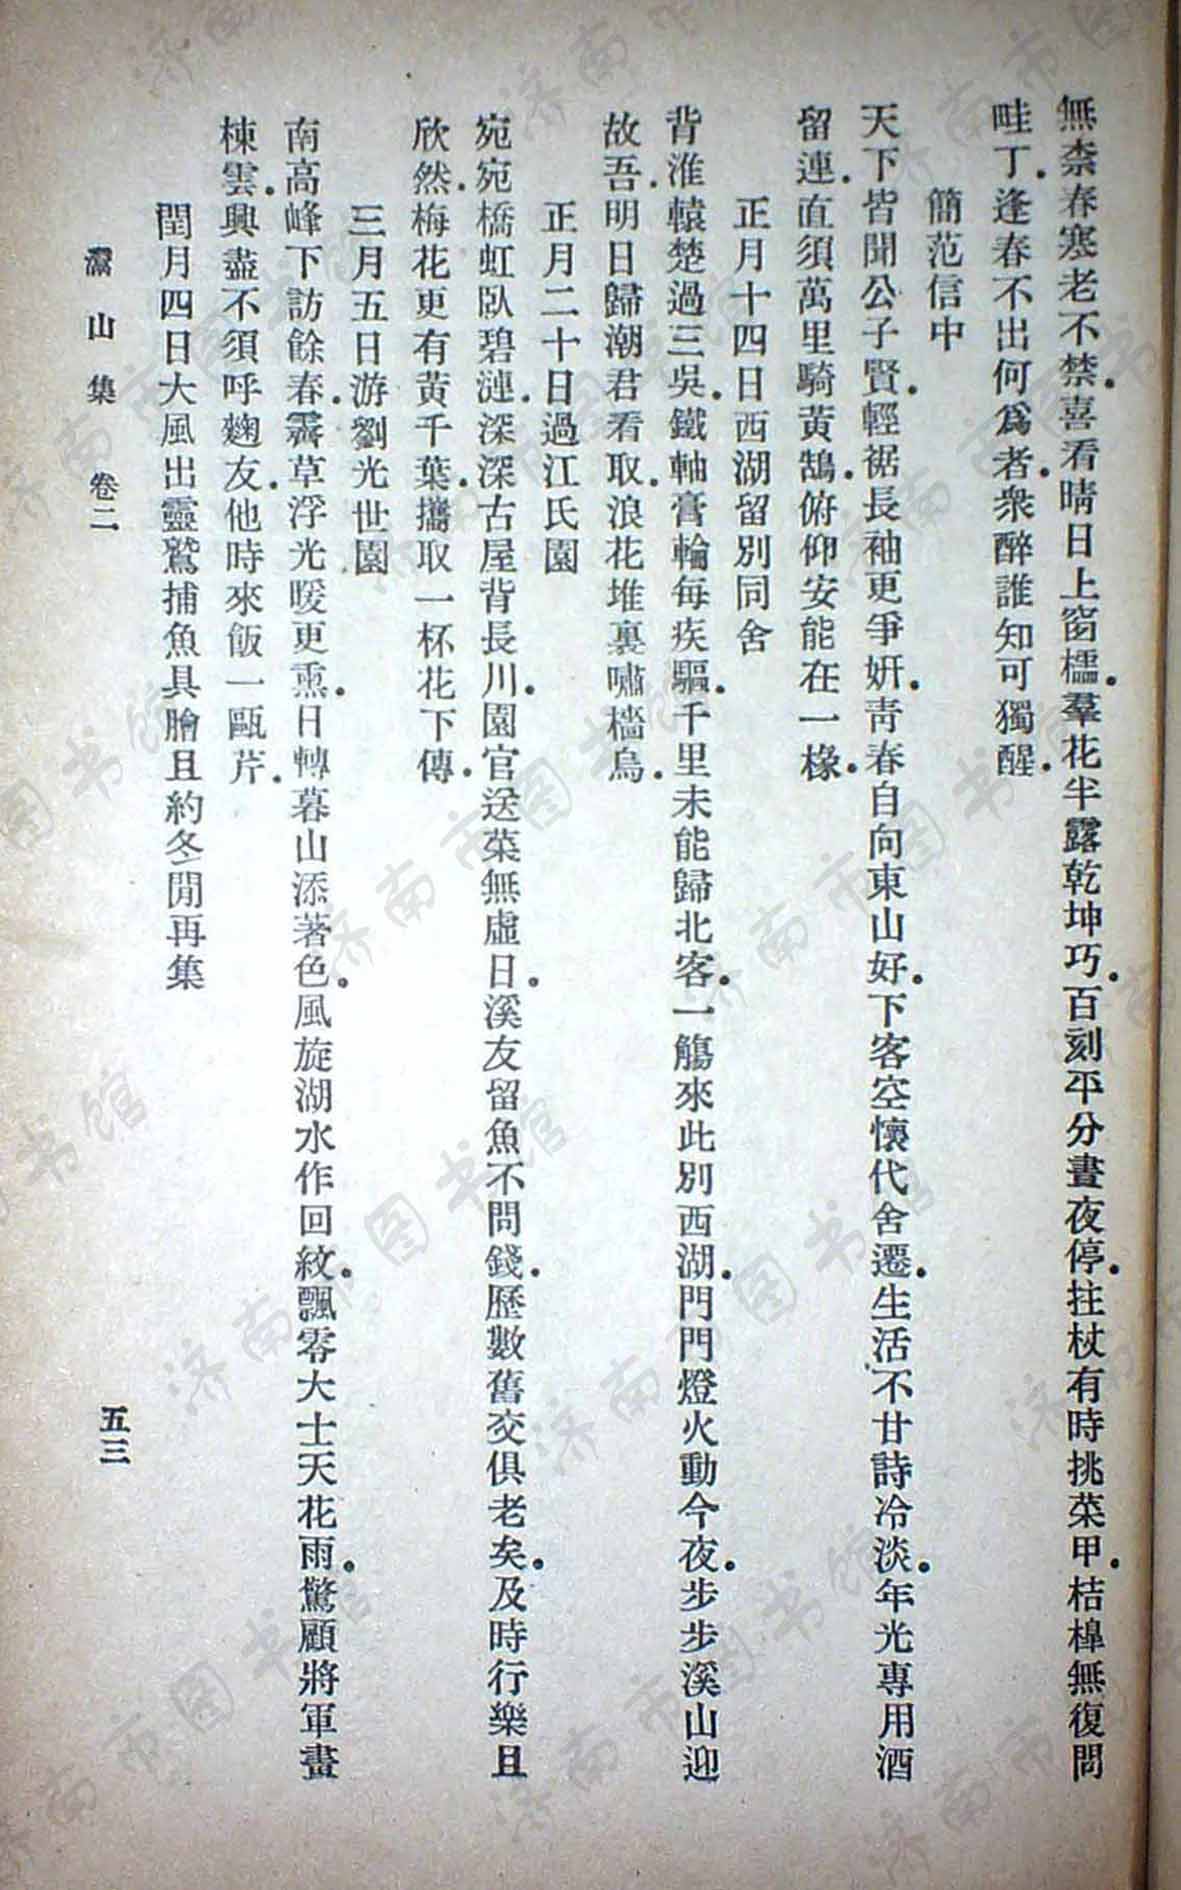 無柰春寒老不禁.喜看晴日上窗櫺.羣花半露乾坤巧.百刻平分晝夜停.拄杖有時挑菜甲.桔槹無復問
畦丁.逢春不出何爲者.衆醉誰知可獨醒.
簡范信中
天下皆聞公子賢.輕裾長袖更爭妍.靑春自向東山好.下客空懷代舍遷.生活不甘詩冷淡.年光專用酒
留連.直須萬里騎黃鵠.俯仰安能在一椽.
正月十四日西湖留別同舍
背淮轅楚過三吳.鐵軸膏輪每疾驅.千里未能歸北客.一觴來此別西湖.門門燈火動今夜.步步溪山迎
故吾.明日歸潮君看取.浪花堆裏嘯檣烏.
正月二十日過江氏園
宛宛橋虹臥碧漣.深深古屋背長川.園官送菜無虛日.溪友留魚不問錢.歷數舊交俱老矣.及時行樂且
欣然.梅花更有黃千葉.攜取一杯花下傳.
三月五日游劉光世園
南高峰下訪餘春.霽草浮光暖更熏.日轉暮山添著色.風旋湖水作回紋.飄零大士天花雨.驚顧將軍畫
棟雲.興盡不須呼麴友.他時來飯一甌芹.
閏月四日大風出靈鷲捕魚具膾且約冬閒再集
灊山集 卷二
五三
济南市图书馆